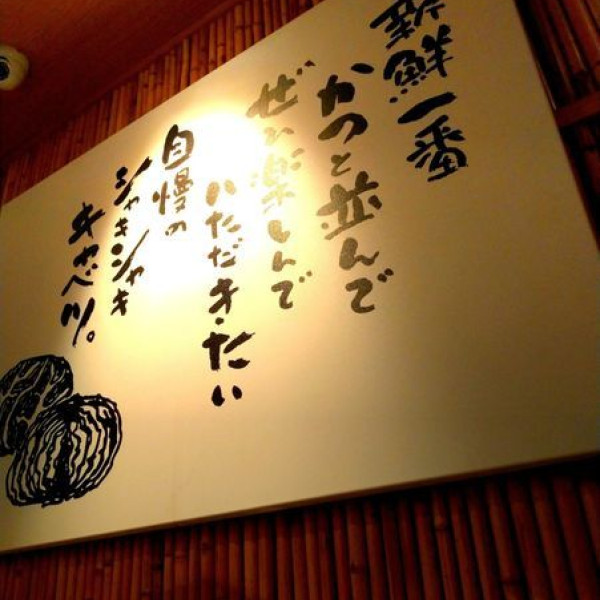 新鮮一番
かつと並んで
ぜひ楽しんで
いただきたい
自慢の
シャキシャキ
キャベツ。